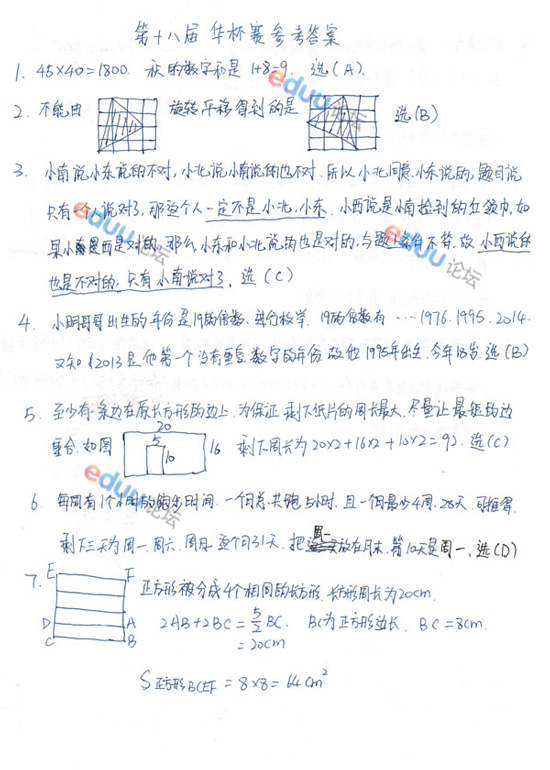 第十八届 华杯赛参考答案
1. 45×40=1800. 积的数字和是 1+8=9. 选(A).
2. 不能由 旋转平移得到的是 选(B)
3. 小南说小东说的不对, 小北说小南说的也不对. 所以小北同意小东说的, 题目说
只有一个人说对了, 那这个人一定不是小北、小东. 小西说是小南捡到的红领巾, 如
果小西是对的, 那么小东和小北说的也是对的, 与题文条件不符, 故小西说的
也是不对的, 只有小南说对了, 选(C)
4. 小明哥哥出生的年份是19的倍数. 进行枚举. 19的倍数有 …1976.1995.2014.
又知 2013是他第一个没有重复数字的年份 故他1995年出生, 今年18岁. 选(B)
5. 至少有一条边在原长方形的边上, 为保证剩下纸片的周长最大, 尽量让最短的边
重合. 如图 20 5 10 16 剩下周长为 20×2+16×2+10×2=92. 选(C)
6. 每周有1个小时的跑步时间. 一个月总共跑5小时, 且一个月最少4周, 28天, 可推得
剩下三天为周一、周六、周日. 这个月31天, 把周一放在月末, 第10天是周一, 选(D)
7. E F D A C B 正方形被分成4个相同的长方形, 长方形周长为20cm.
2AB+2BC=5/2BC. BC为正方形边长. BC=8cm.
=20cm
S正方形BCEF=8×8=64cm²
eduu论坛
eduu论坛
eduu论坛
eduu论坛
eduu论坛